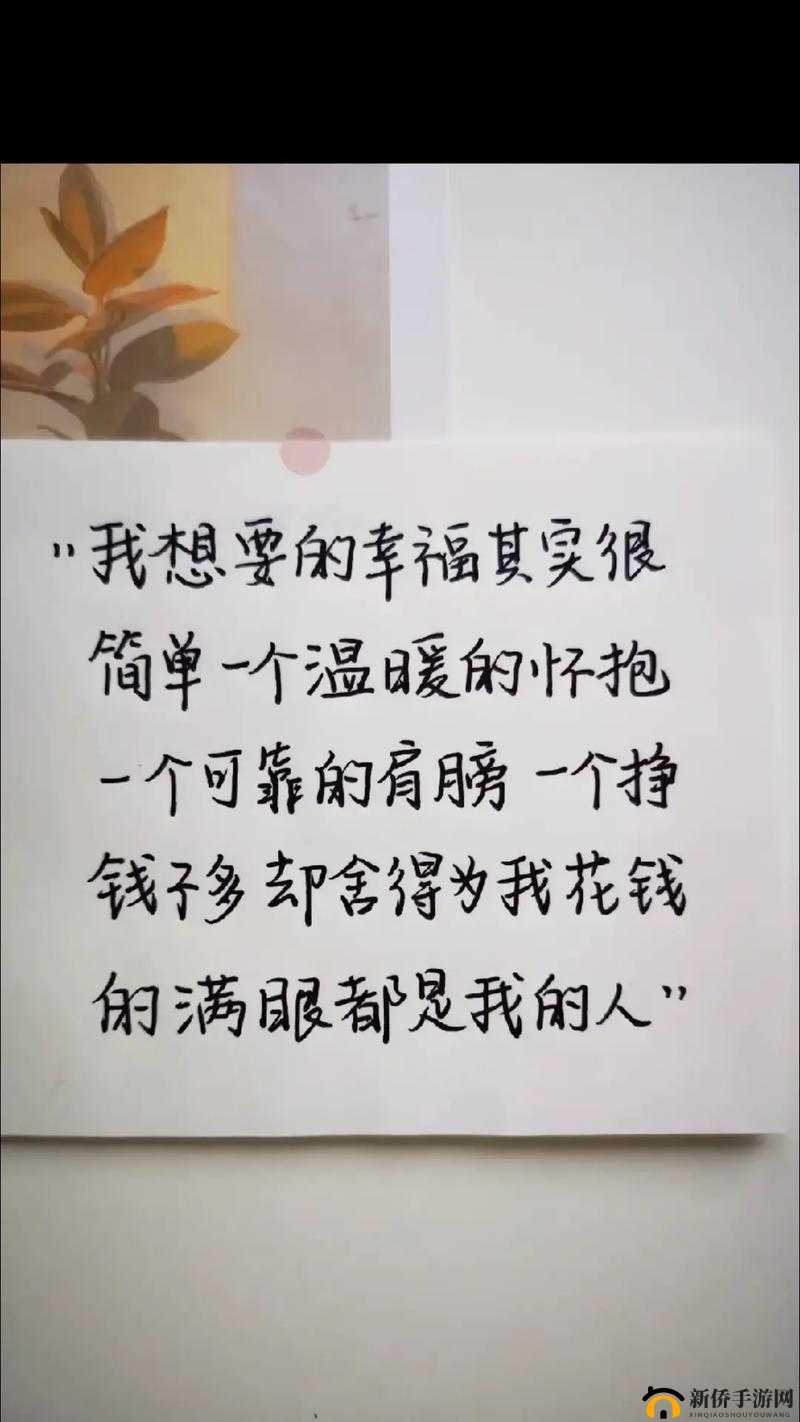 "我想要的幸福其实很
简单一个温暖的怀抱
一个可靠的肩膀 一个挣
钱不多却舍得为我花钱
的满眼都是我的人"
新侨手游网
XINQIAOSHOUYOUWANG